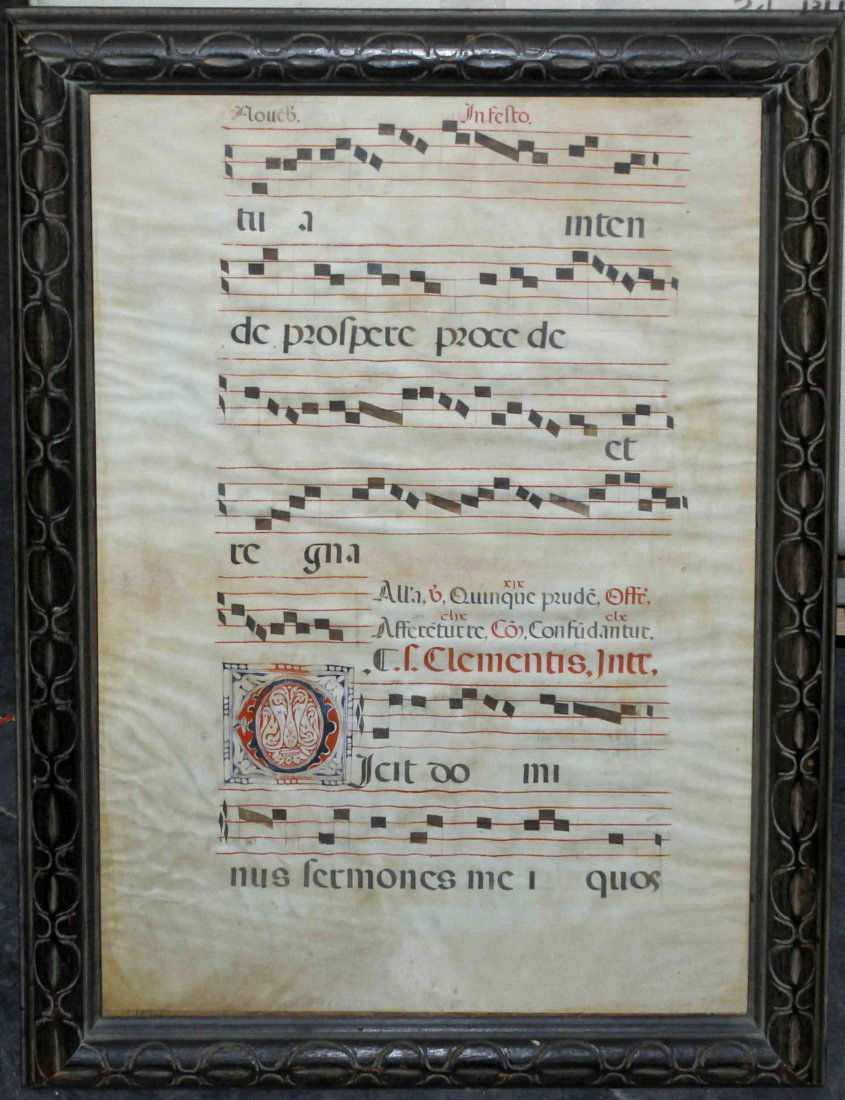 Nouēb. In festo.
tu a inten
de proſpere proce de
et
re gna
xjx
All'a, ℣, Quinque prudē, Offr̄,
cljx clx
Afferētur re, Cōɔ, Confūdantur.
.C. ſ. Clementis, Intr̄,
DIcit do mi
nus ſermones me i quos